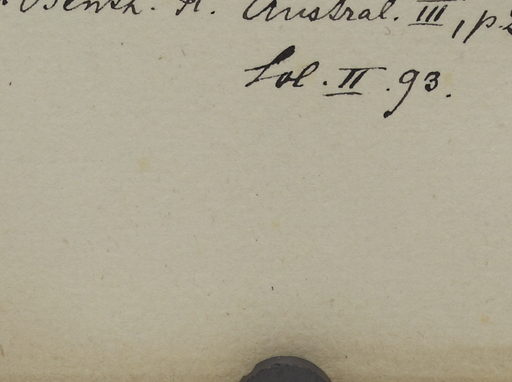 Benth. Fl. Austral. III, p.
Sol. II. 93.